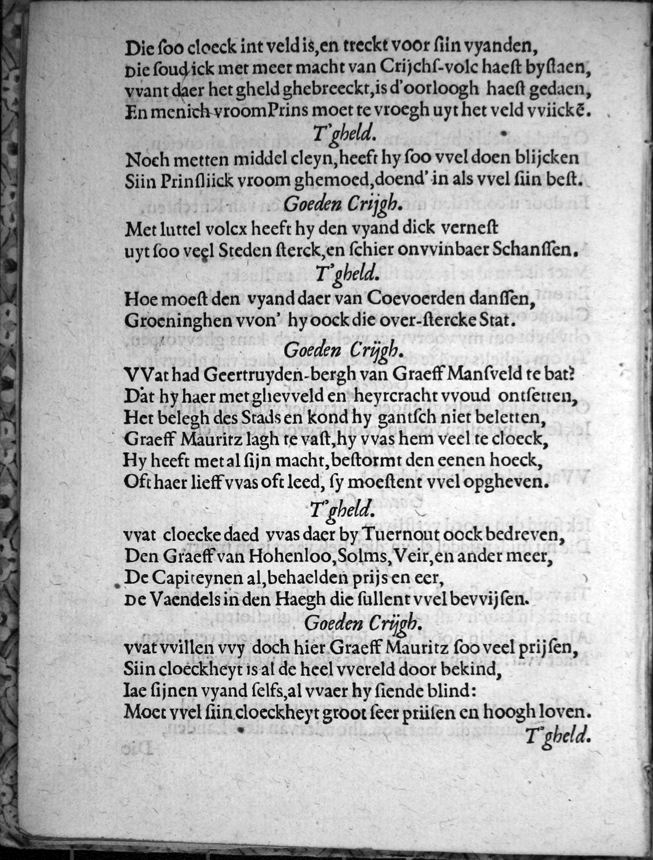 Die ſoo cloeck int veld is, en treckt voor ſiin vyanden,
Die ſoud ick met meer macht van Crijchſ-volc haeſt byſtaen,
vvant daer het gheld ghebreeckt, is d'oorloogh haeſt gedaen,
En menich vroom Prins moet te vroegh uyt het veld vviickē.
T'gheld.
Noch metten middel cleyn, heeft hy ſoo vvel doen blijcken
Siin Prinſliick vroom ghemoed, doend' in als vvel ſiin beſt.
Goeden Crijgh.
Met luttel volcx heeft hy den vyand dick verneſt
uyt ſoo veel Steden ſterck, en ſchier onvvinbaer Schanſſen.
T'gheld.
Hoe moeſt den vyand daer van Coevoerden danſſen,
Groeninghen vvon' hy oock die over-ſtercke Stat.
Goeden Crijgh.
VVat had Geertruyden-bergh van Graeff Manſveld te bat?
Dat hy haer met ghevveld en heyrcracht vvoud ontſetten,
Het belegh des Stads en kond hy gantſch niet beletten,
Graeff Mauritz lagh te vaſt, hy vvas hem veel te cloeck,
Hy heeft met al ſijn macht, beſtormt den eenen hoeck,
Oft haer lieff vvas oft leed, ſy moeſtent vvel opgheven.
T'gheld.
vvat cloecke daed vvas daer by Tuernout oock bedreven,
Den Graeff van Hohenloo, Solms, Veir, en ander meer,
De Capiteynen al, behaelden prijs en eer,
De Vaendels in den Haegh die ſullent vvel bevvijſen.
Goeden Crijgh.
vvat vvillen vvy doch hier Graeff Mauritz ſoo veel prijſen,
Siin cloeckheyt is al de heel vvereld door bekind,
Iae ſijnen vyand ſelfs, al vvaer hy ſiende blind:
Moet vvel ſiin cloeckheyt groot ſeer priiſen en hoogh loven.
T'gheld.